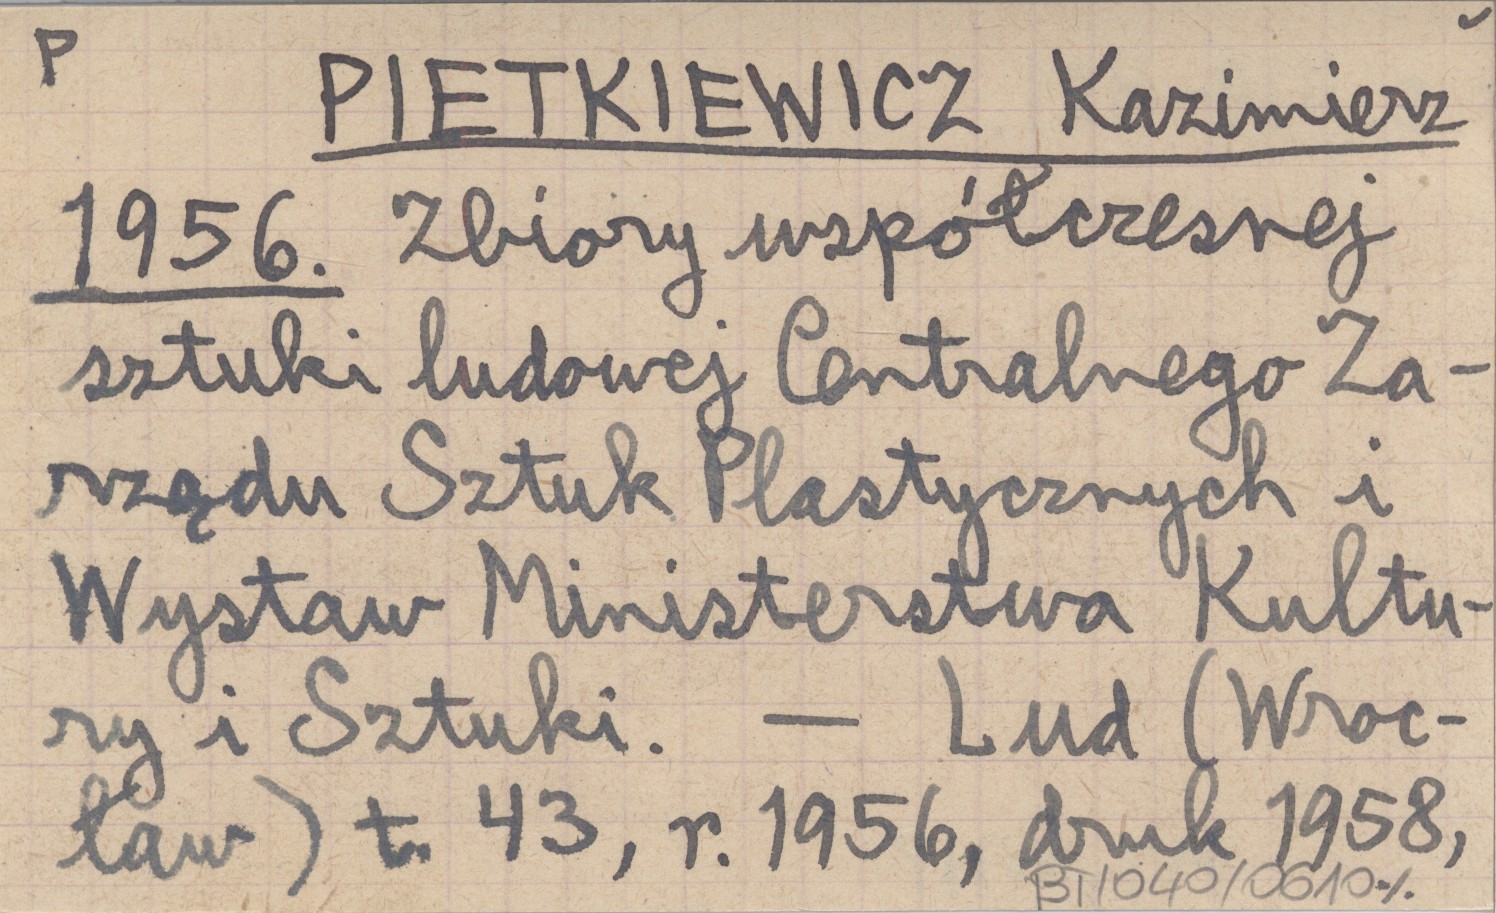 P
PIETKIEWICZ Kazimierz
1956. Zbiory współczesnej
sztuki ludowej Centralnego Za-
rządu Sztuk Plastycznych i
Wystaw Ministerstwa Kultu-
ry i Sztuki. — Lud (Wroc-
ław) t. 43, r. 1956, druk 1958,
BT/1040/0610